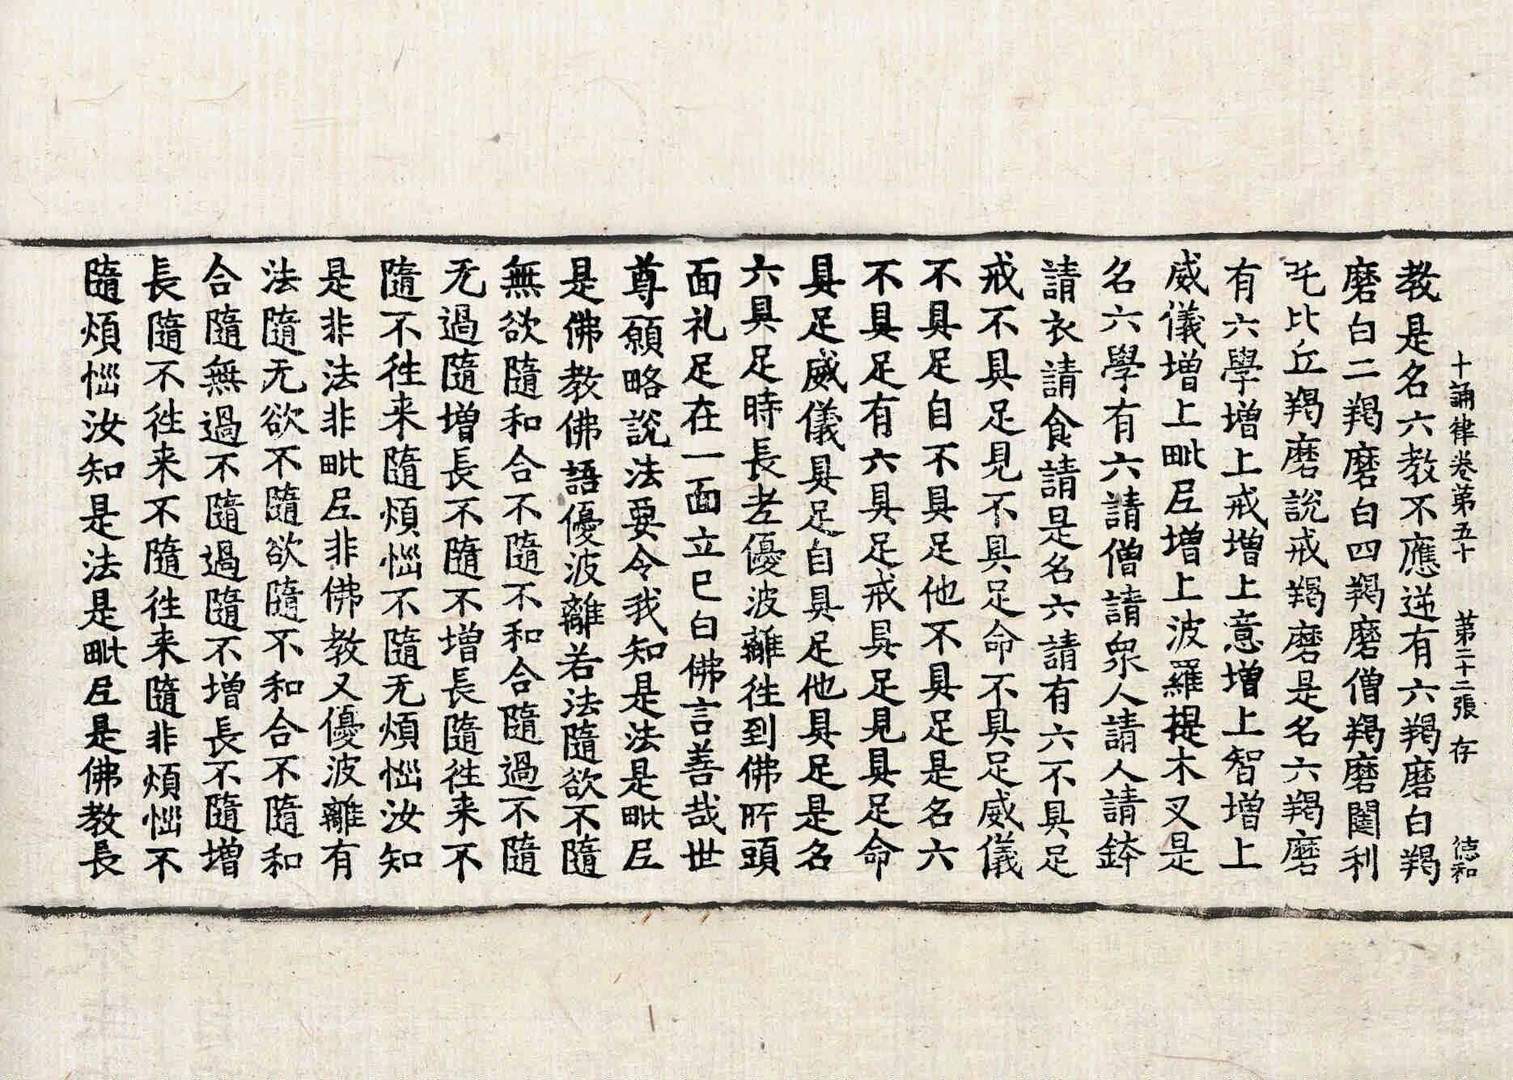 十誦律卷第五十 第二十二張 存 德和
教是名六教不應逆有六羯磨白羯
磨白二羯磨白四羯磨僧羯磨闥利
吒比丘羯磨說戒羯磨是名六羯磨
有六學增上戒增上意增上智增上
威儀增上毗尼增上波羅提木叉是
名六學有六請僧請衆人請人請鉢
請衣請食請是名六請有六不具足
戒不具足見不具足命不具足威儀
不具足自不具足他不具足是名六
不具足有六具足戒具足見具足命
具足威儀具足自具足他具足是名
六具足時長老優波離往到佛所頭
面礼足在一面立已白佛言善哉世
尊願略說法要令我知是法是毗尼
是佛教佛語優波離若法隨欲不隨
無欲隨和合不隨不和合隨過不隨
无過隨增長不隨不增長隨往来不
隨不往来隨煩惱不隨无煩惱汝知
是非法非毗尼非佛教又優波離有
法隨无欲不隨欲隨不和合不隨和
合隨無過不隨過隨不增長不隨增
長隨不往来不隨往来隨非煩惱不
隨煩惱汝知是法是毗尼是佛教長